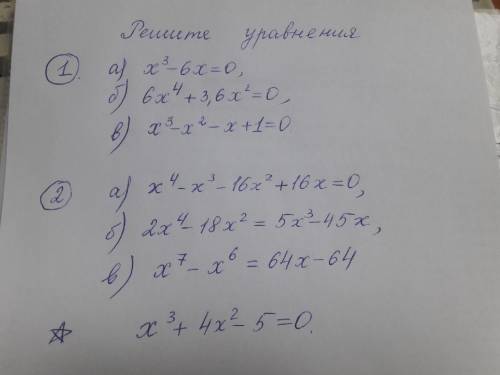 Решите уравнения
1 а) x³-6x=0,
б) 6x⁴+3,6x²=0,
в) x³-x²-x+1=0
2 а) x⁴-x³-16x²+16x=0,
б) 2x⁴-18x²=5x³-45x,
в) x⁷-x⁶=64x-64
☆ x³+4x²-5=0.